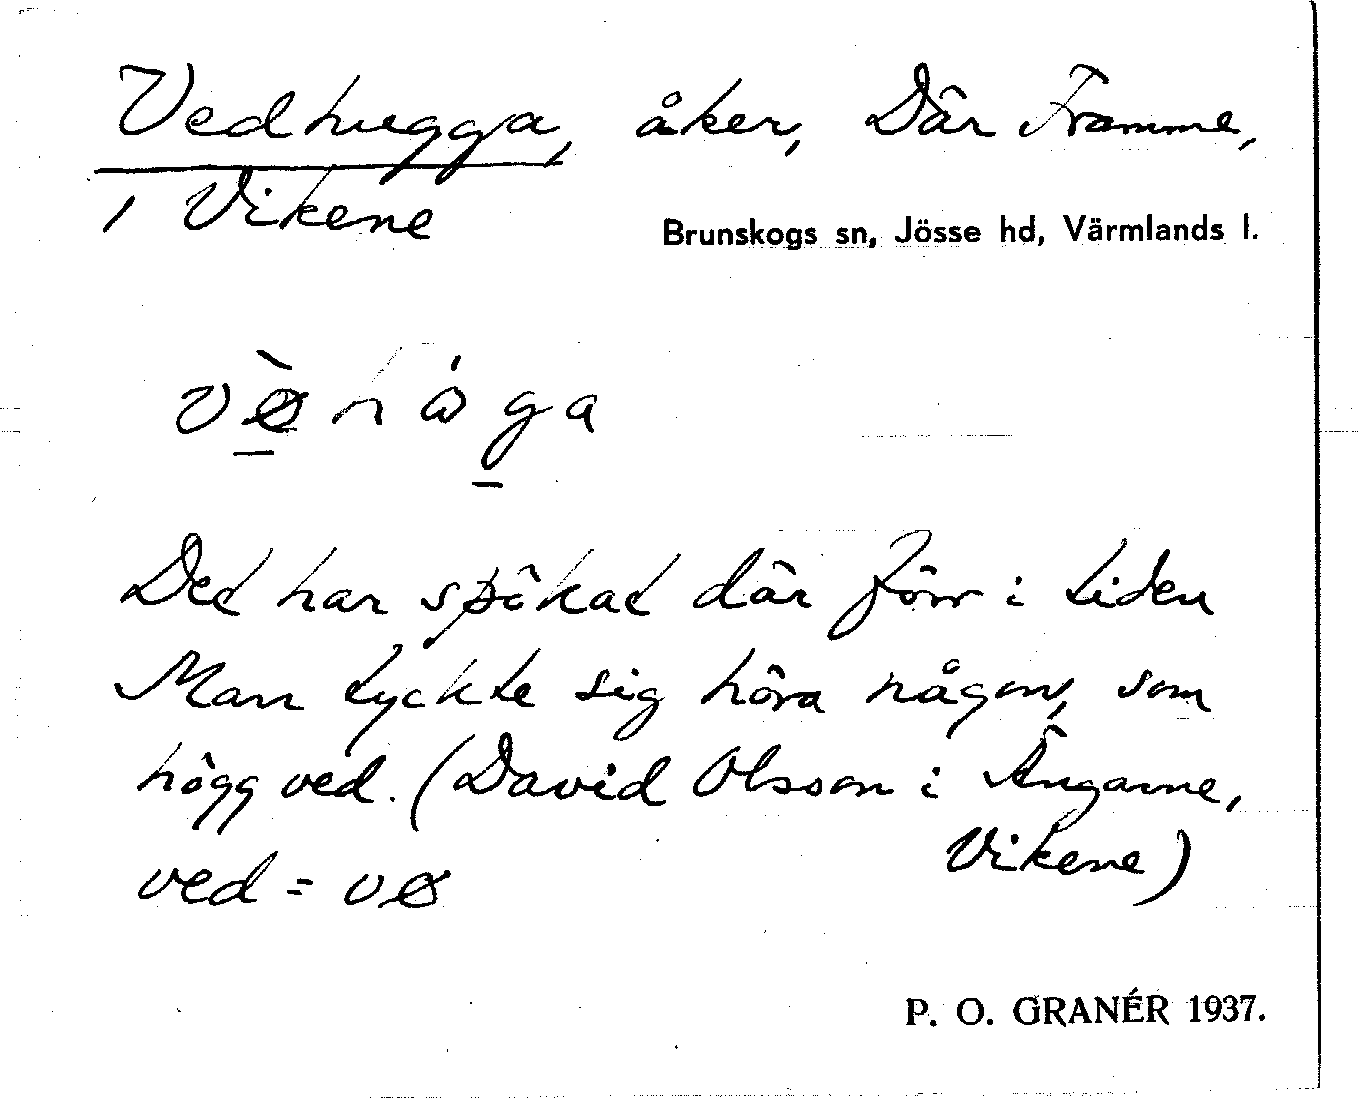 Vedhugga, åker, Där Framme,
i Vikene
Brunskogs sn, Jösse hd, Värmlands l.
Det har spökat där förr i tiden
Man tyckte sig höra någon, som
högg ved. (David Olsson i Ängarne,
Vikene)
ved = vø
P. O. GRANÉR 1937.